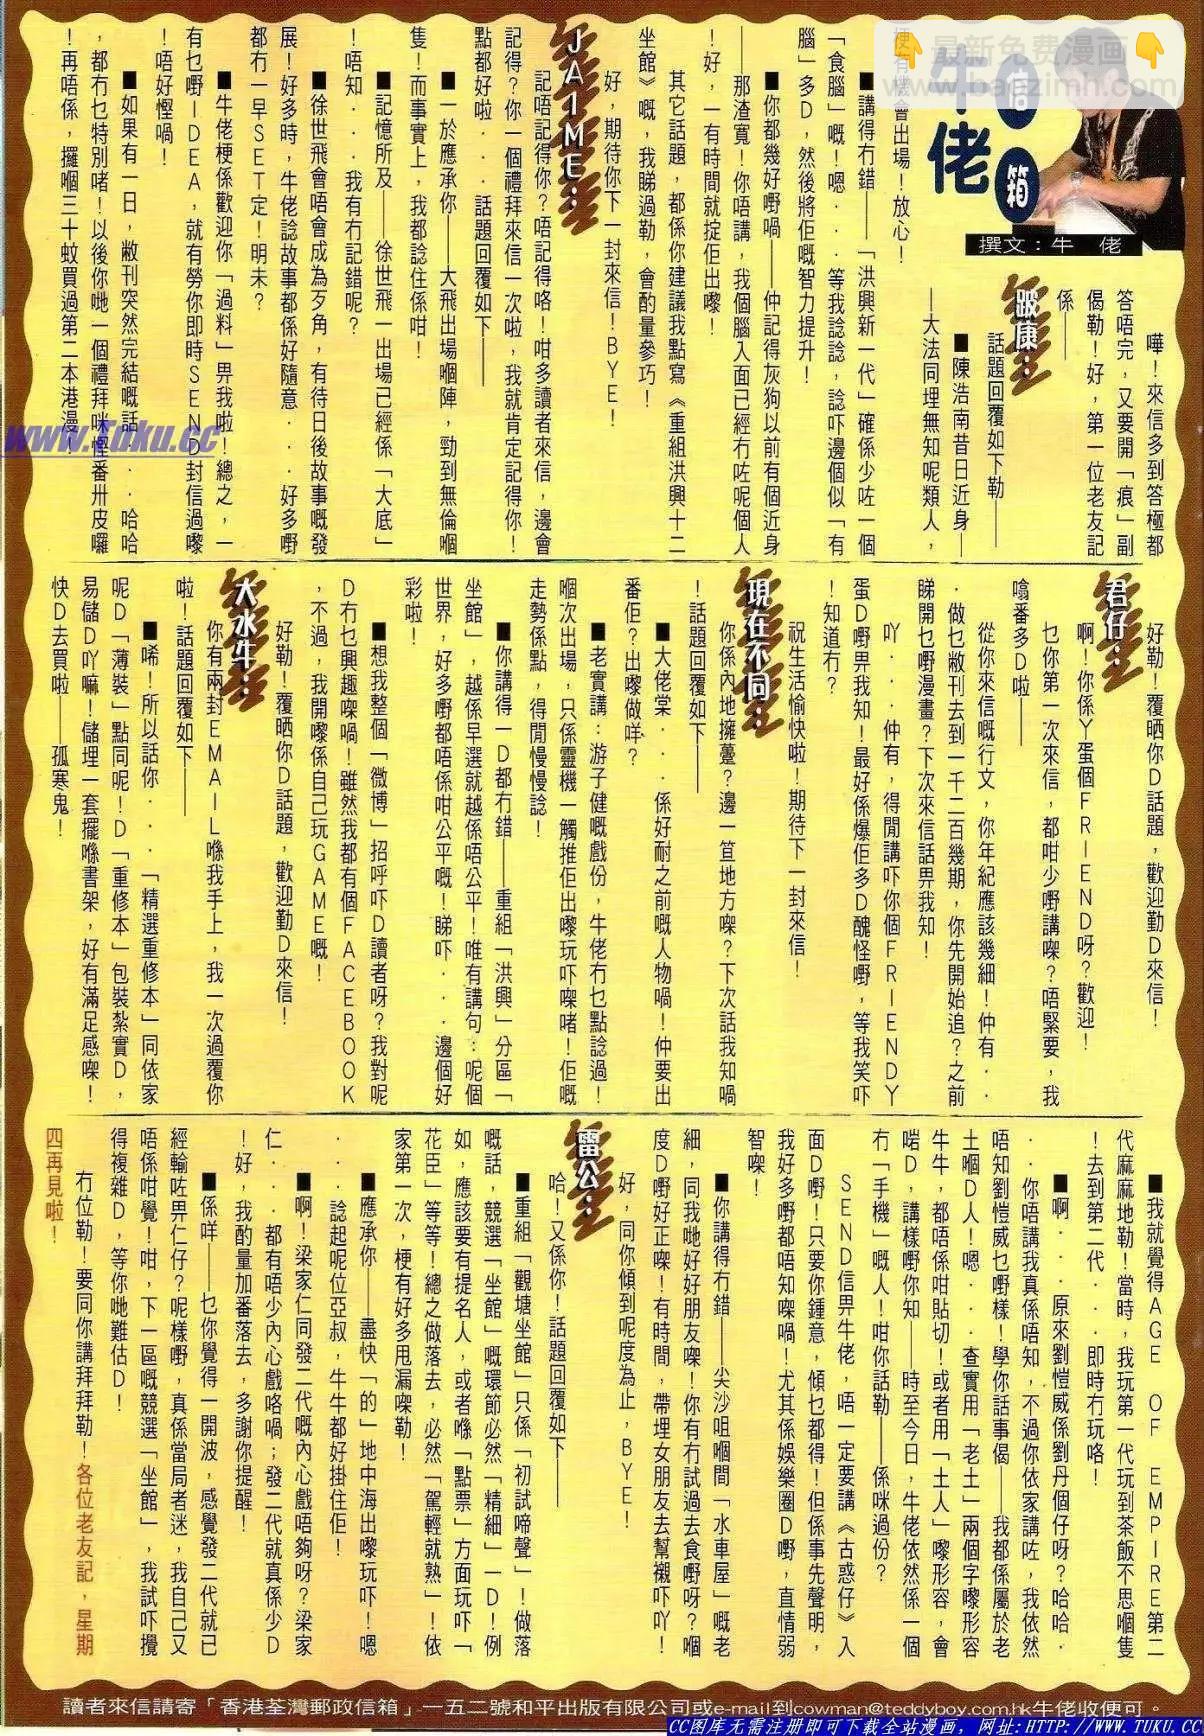 牛佬
信箱
撰文：牛　佬
嘩！來信多到答極都
答唔完，又要開「痕」副
偈勒！好，第一位老友記
係——
跛康：
話題回覆如下勒——
■陳浩南昔日近身—
—大法同埋無知呢類人，
梗有機會出場！放心！
■講得冇錯——「洪興新一代」確係少咗一個
「食腦」嘅！嗯．．．等我諗諗，諗吓邊個似「有
腦」多D，然後將佢嘅智力提升！
■你都幾好嘢喎——仲記得灰狗以前有個近身
——那渣寬！你唔講，我個腦入面已經冇咗呢個人
！好，一有時間就掟佢出嚟！
其它話題，都係你建議我點寫《重組洪興十二
坐館》嘅，我睇過勒，會酌量參巧！
好，期待你下一封來信！BYE！
JAIME：
記唔記得你？唔記得咯！咁多讀者來信，邊會
記得？你一個禮拜來信一次啦，我就肯定記得你！
點都好啦．．話題回覆如下——
■一於應承你——大飛出場嗰陣，勁到無倫嗰
隻！而事實上，我都諗住係咁！
■記憶所及——徐世飛一出場已經係「大底」
！唔知．．．我有冇記錯呢？
■徐世飛會唔會成為歹角，有待日後故事嘅發
展！好多時，牛佬諗故事都係好隨意．．．好多嘢
都冇一早SET定！明未？
■牛佬梗係歡迎你「過料」畀我啦！總之，一
有乜嘢IDEA，就有勞你即時SEND封信過嚟
！唔好慳喎！
■如果有一日，敝刊突然完結嘅話．．．哈哈
，都冇乜特別啫！以後你哋一個禮拜咪慳番卅皮囉
！再唔係，攞嗰三十蚊買過第二本港漫！
好勒！覆晒你D話題，歡迎勤D來信！
君仔：
啊！你係Y蛋個FRIEND呀？歡迎！
乜你第一次來信，都咁少嘢講㗎？唔緊要，我
噏番多D啦——
從你來信嘅行文，你年紀應該幾細！仲有．．
．做乜敝刊去到一千二百幾期，你先開始追？之前
睇開乜嘢漫畫？下次來信話畀我知！
吖．．．仲有，得閒講吓你個FRIENDY
蛋D嘢畀我知！最好係爆佢多D醜怪嘢，等我笑吓
！知道冇？
祝生活愉快啦！期待下一封來信！
現在不同：
你係內地擁躉？邊一笪地方㗎？下次話我知喎
！話題回覆如下——
■大佬棠．．．係好耐之前嘅人物喎！仲要出
番佢？出嚟做咩？
■老實講：游子健嘅戲份，牛佬冇乜點諗過！
嗰次出場，只係靈機一觸推佢出嚟玩吓㗎啫！佢嘅
走勢係點，得閒慢慢諗！
■你講得一D都冇錯——重組「洪興」分區「
坐館」，越係早選就越係唔公平！唯有講句：呢個
世界，好多嘢都唔係咁公平嘅！睇吓．．邊個好
彩啦！
■想我整個「微博」招呼吓D讀者呀？我對呢
D冇乜興趣㗎喎！雖然我都有個FACEBOOK
，不過，我開嚟係自己玩GAME嘅！
好勒！覆晒你D話題，歡迎勤D來信！
大水牛：
你有兩封EMAIL喺我手上，我一次過覆你
啦！話題回覆如下——
■唏！所以話你．．．「精選重修本」同依家
呢D「薄裝」點同呢！D「重修本」包裝紮實D，
易儲D吖嘛！儲埋一套擺喺書架，好有滿足感㗎！
快D去買啦——孤寒鬼！
■我就覺得AGE OF EMPIRE第二
代麻麻地勒！當時，我玩第一代玩到茶飯不思嗰隻
！去到第二代．．．即時冇玩咯！
■啊．．．原來劉愷威係劉丹個仔呀？哈哈．
．你唔講我真係唔知，不過你依家講咗，我依然
唔知劉愷威乜嘢樣！學你話事偈——我都係屬於老
土嗰D人！嗯．．．查實用「老土」兩個字嚟形容
牛牛，都唔係咁貼切！或者用「土人」嚟形容，會
啱D，講樣嘢你知——時至今日，牛佬依然係一個
冇「手機」嘅人！咁你話勒——係咪過份？
SEND信畀牛佬，唔一定要講《古惑仔》入
面D嘢！只要你鍾意，傾乜都得！但係事先聲明，
我好多嘢都唔知㗎喎！尤其係娛樂圈D嘢，直情弱
智㗎！
■你講得冇錯——尖沙咀嗰間「水車屋」嘅老
細，同我哋好好朋友㗎！你有冇試過去食嘢呀？嗰
度D嘢好正㗎！有時間，帶埋女朋友去幫襯吓吖！
好，同你傾到呢度為止，BYE！
雷公：
哈！又係你！話題回覆如下——
■重組「觀塘坐館」只係「初試啼聲」！做落
嘅話，競選「坐館」嘅環節必然「精細」一D！例
如，應該要有提名人，或者喺「點票」方面玩吓「
花臣」等等！總之做落去　必然「駕輕就熟」！依
家第一次，梗有好多甩漏㗎勒！
■應承你——盡快「的」地中海出嚟玩吓！嗯
．．．諗起呢位亞叔，牛牛都好掛住佢！
■啊！梁家仁同發二代嘅內心戲唔夠呀？梁家
仁．．．都有唔少內心戲咯喎；發二代就真係少D
！好，我酌量加番落去，多謝你提醒！
■係咩——乜你覺得一開波，感覺發二代就已
經輸咗畀仁仔？呢樣嘢，真係當局者迷，我自己又
唔係咁覺！咁，下一區嘅競選「坐館」，我試吓攪
得複雜D，等你哋難估D！
冇位勒！要同你講拜拜勒！各位老友記，星期
四再見啦！
讀者來信請寄「香港荃灣郵政信箱」一五二號和平出版有限公司或e-mail到cowman@teddyboy.com.hk牛佬收便可。
www.Tuku.cc
👇最新免费漫画👇
www.baozimh.com
CC图库无需注册即可下载全站漫画，网址:HTTP://WWW.TUKU.CC